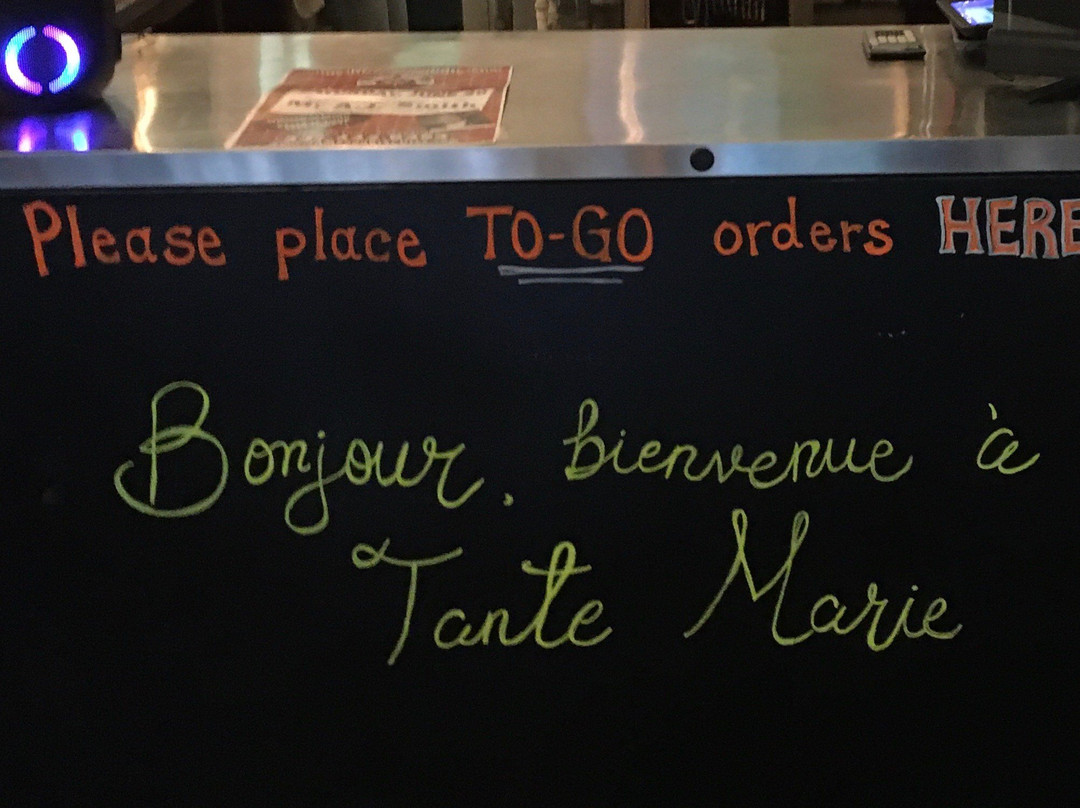 Please place TO-GO orders HERE
Bonjour, bienvenue à
Tante Marie